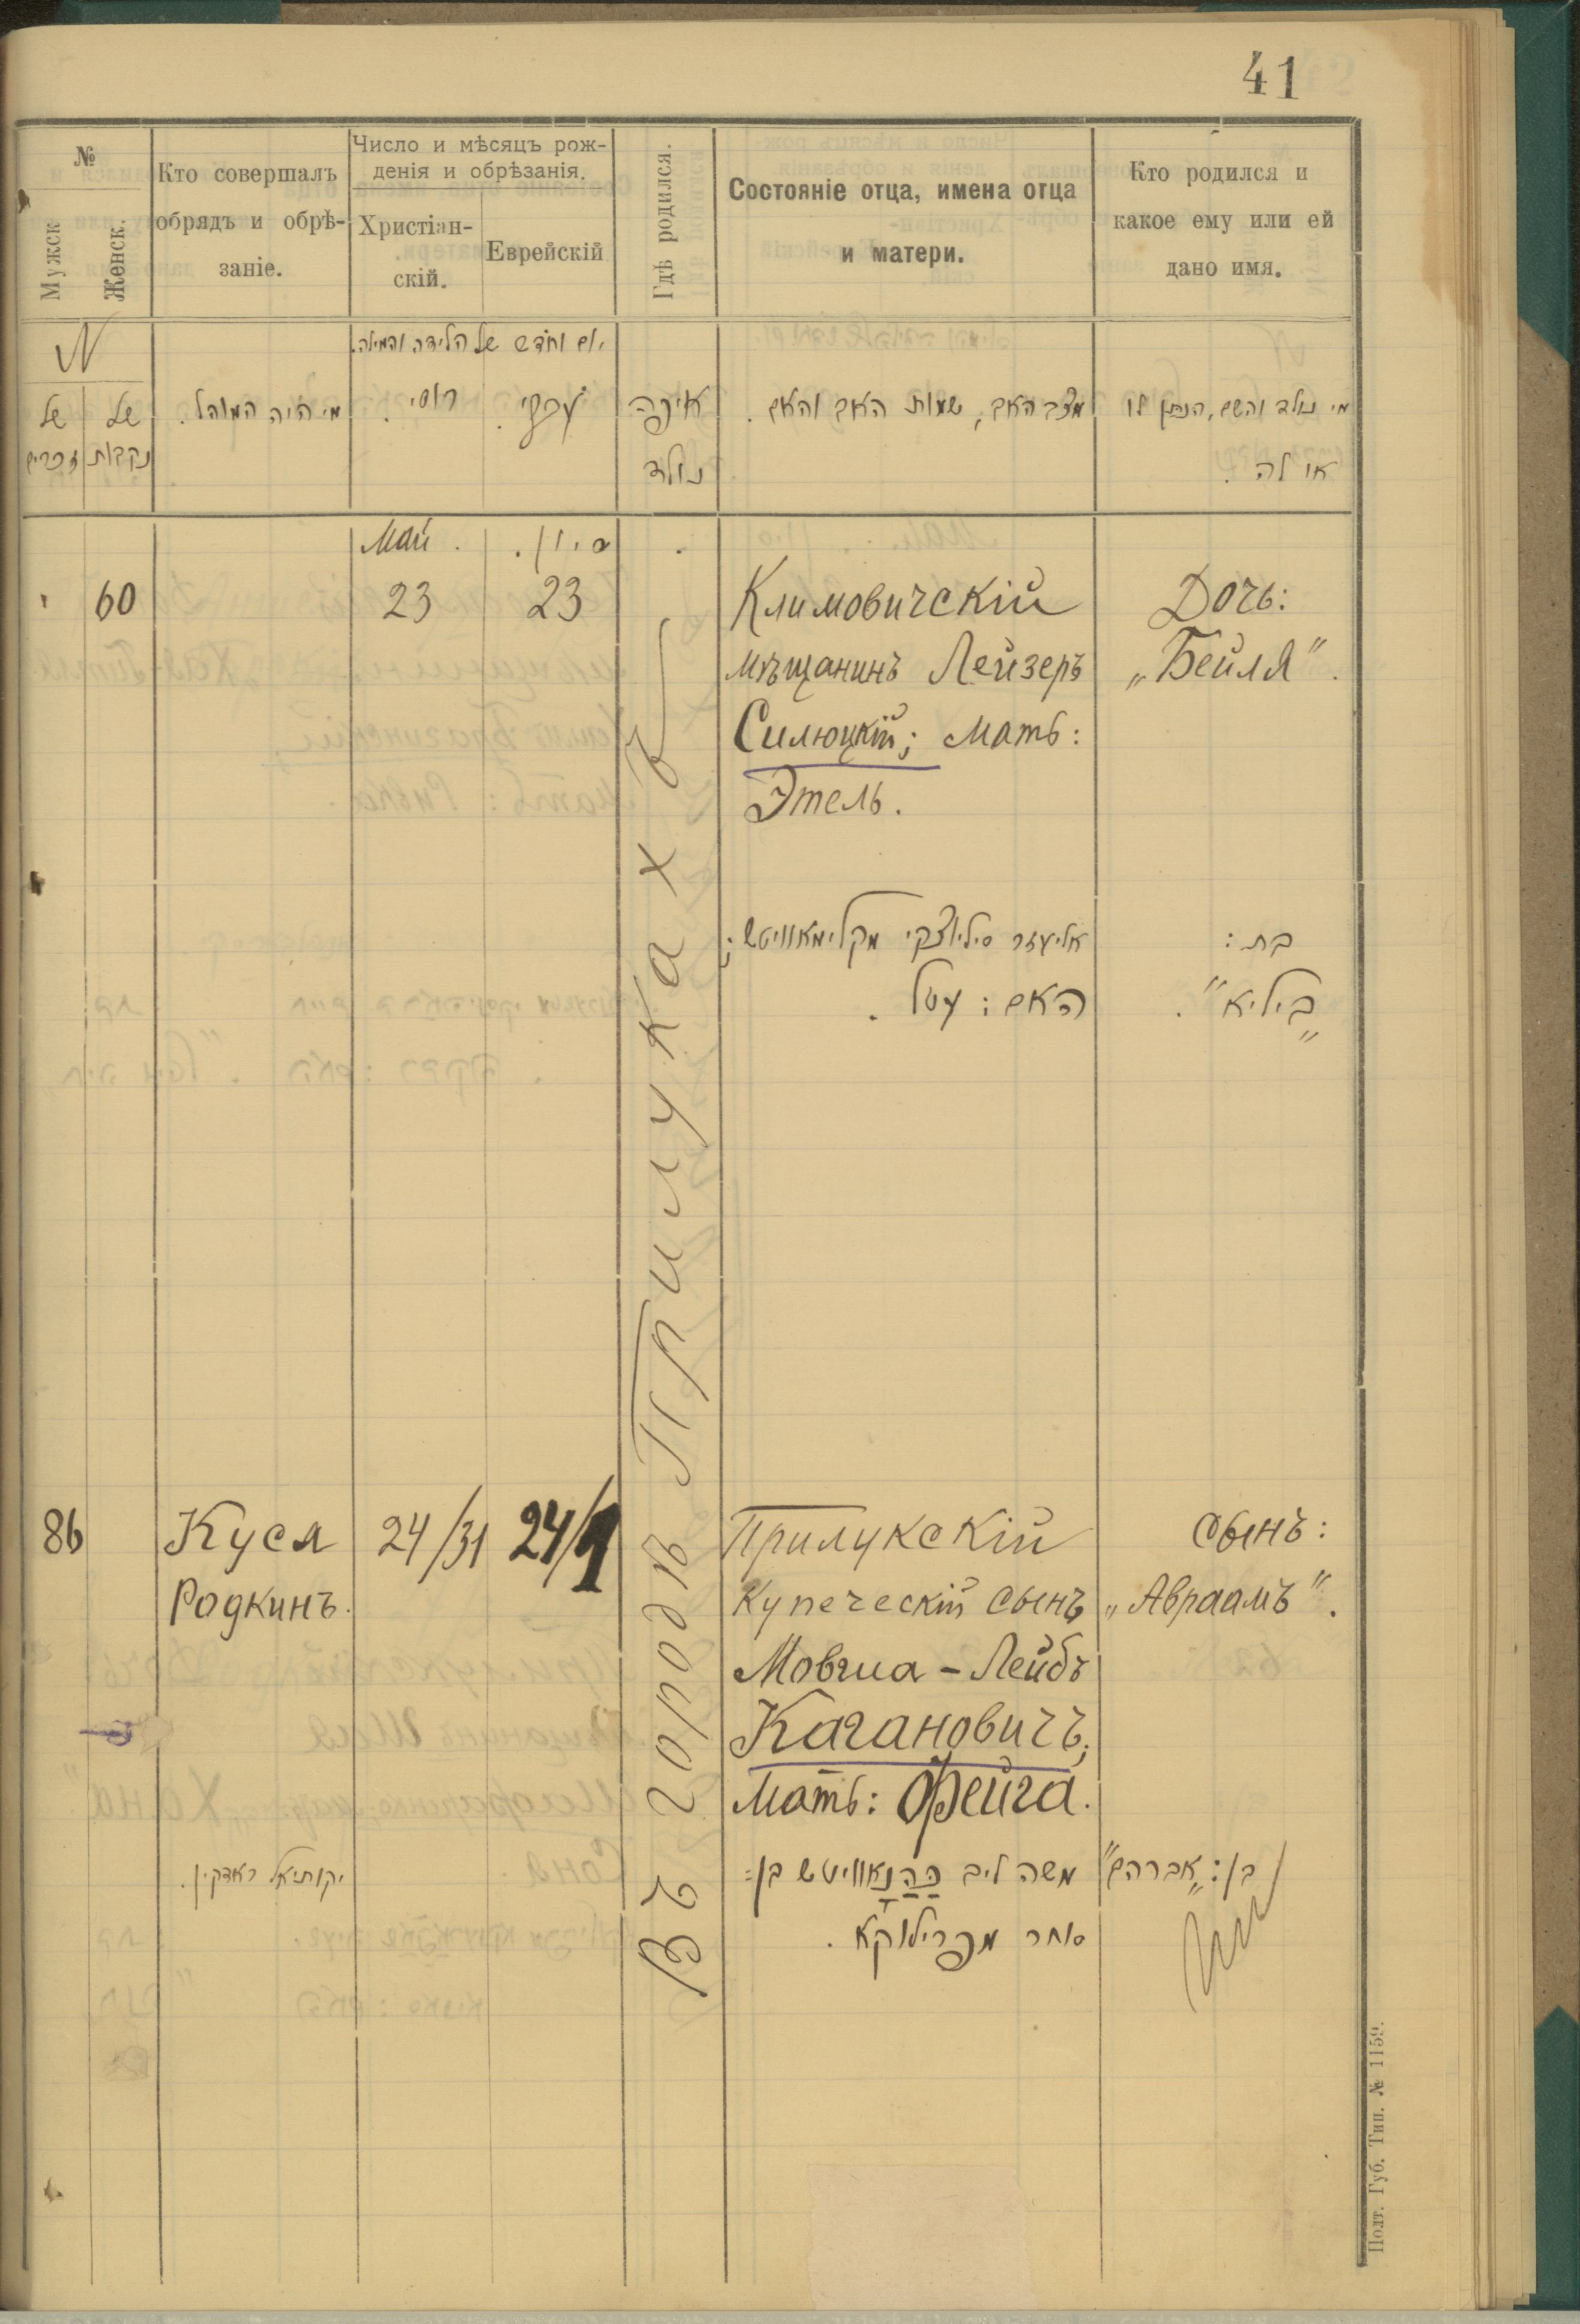 41
№
Мужск
Женск.
Кто совершалъ
обрядъ и обрѣ-
заніе.
Число и мѣсяцъ рож-
денія и обрѣзанія.
Христіан-
скій.
Еврейскій
Гдѣ родился.
Состояніе отца, имена отца
и матери.
Кто родился и
какое ему или ей
дано имя.
N
של
זכרים
של
נקבות
מי היה המוהל.
יום וחדש של הלידה והמילה.
רוסי.
עברי.
איפה
נולד
מצב האב, שמות האב והאם.
מי נולד והשם, הנתן לו
או לה.
Май.
סיון.
60
23
23
Климовичскій
мѣщанинъ Лейзеръ
Силюцкій; мать:
Этель.
Дочь:
„Бейля".
אליעזר סיליוצקי מקלימאוויטש;
האם: עטל.
בת:
„ביליא".
Въ городѣ Прилукахъ
86
Куся
Родкинъ.
24/31
24/1
Прилукскій
купеческій сынъ
Мовша-Лейбъ
Кагановичъ;
мать: Фейга.
сынъ:
„Авраамъ".
יקותיאל ראדקין.
משה ליב כהנאוויטש בן=
סוחר מפרילוקא.
בן: „אברהם"
Полт. Губ. Тип. № 1159.